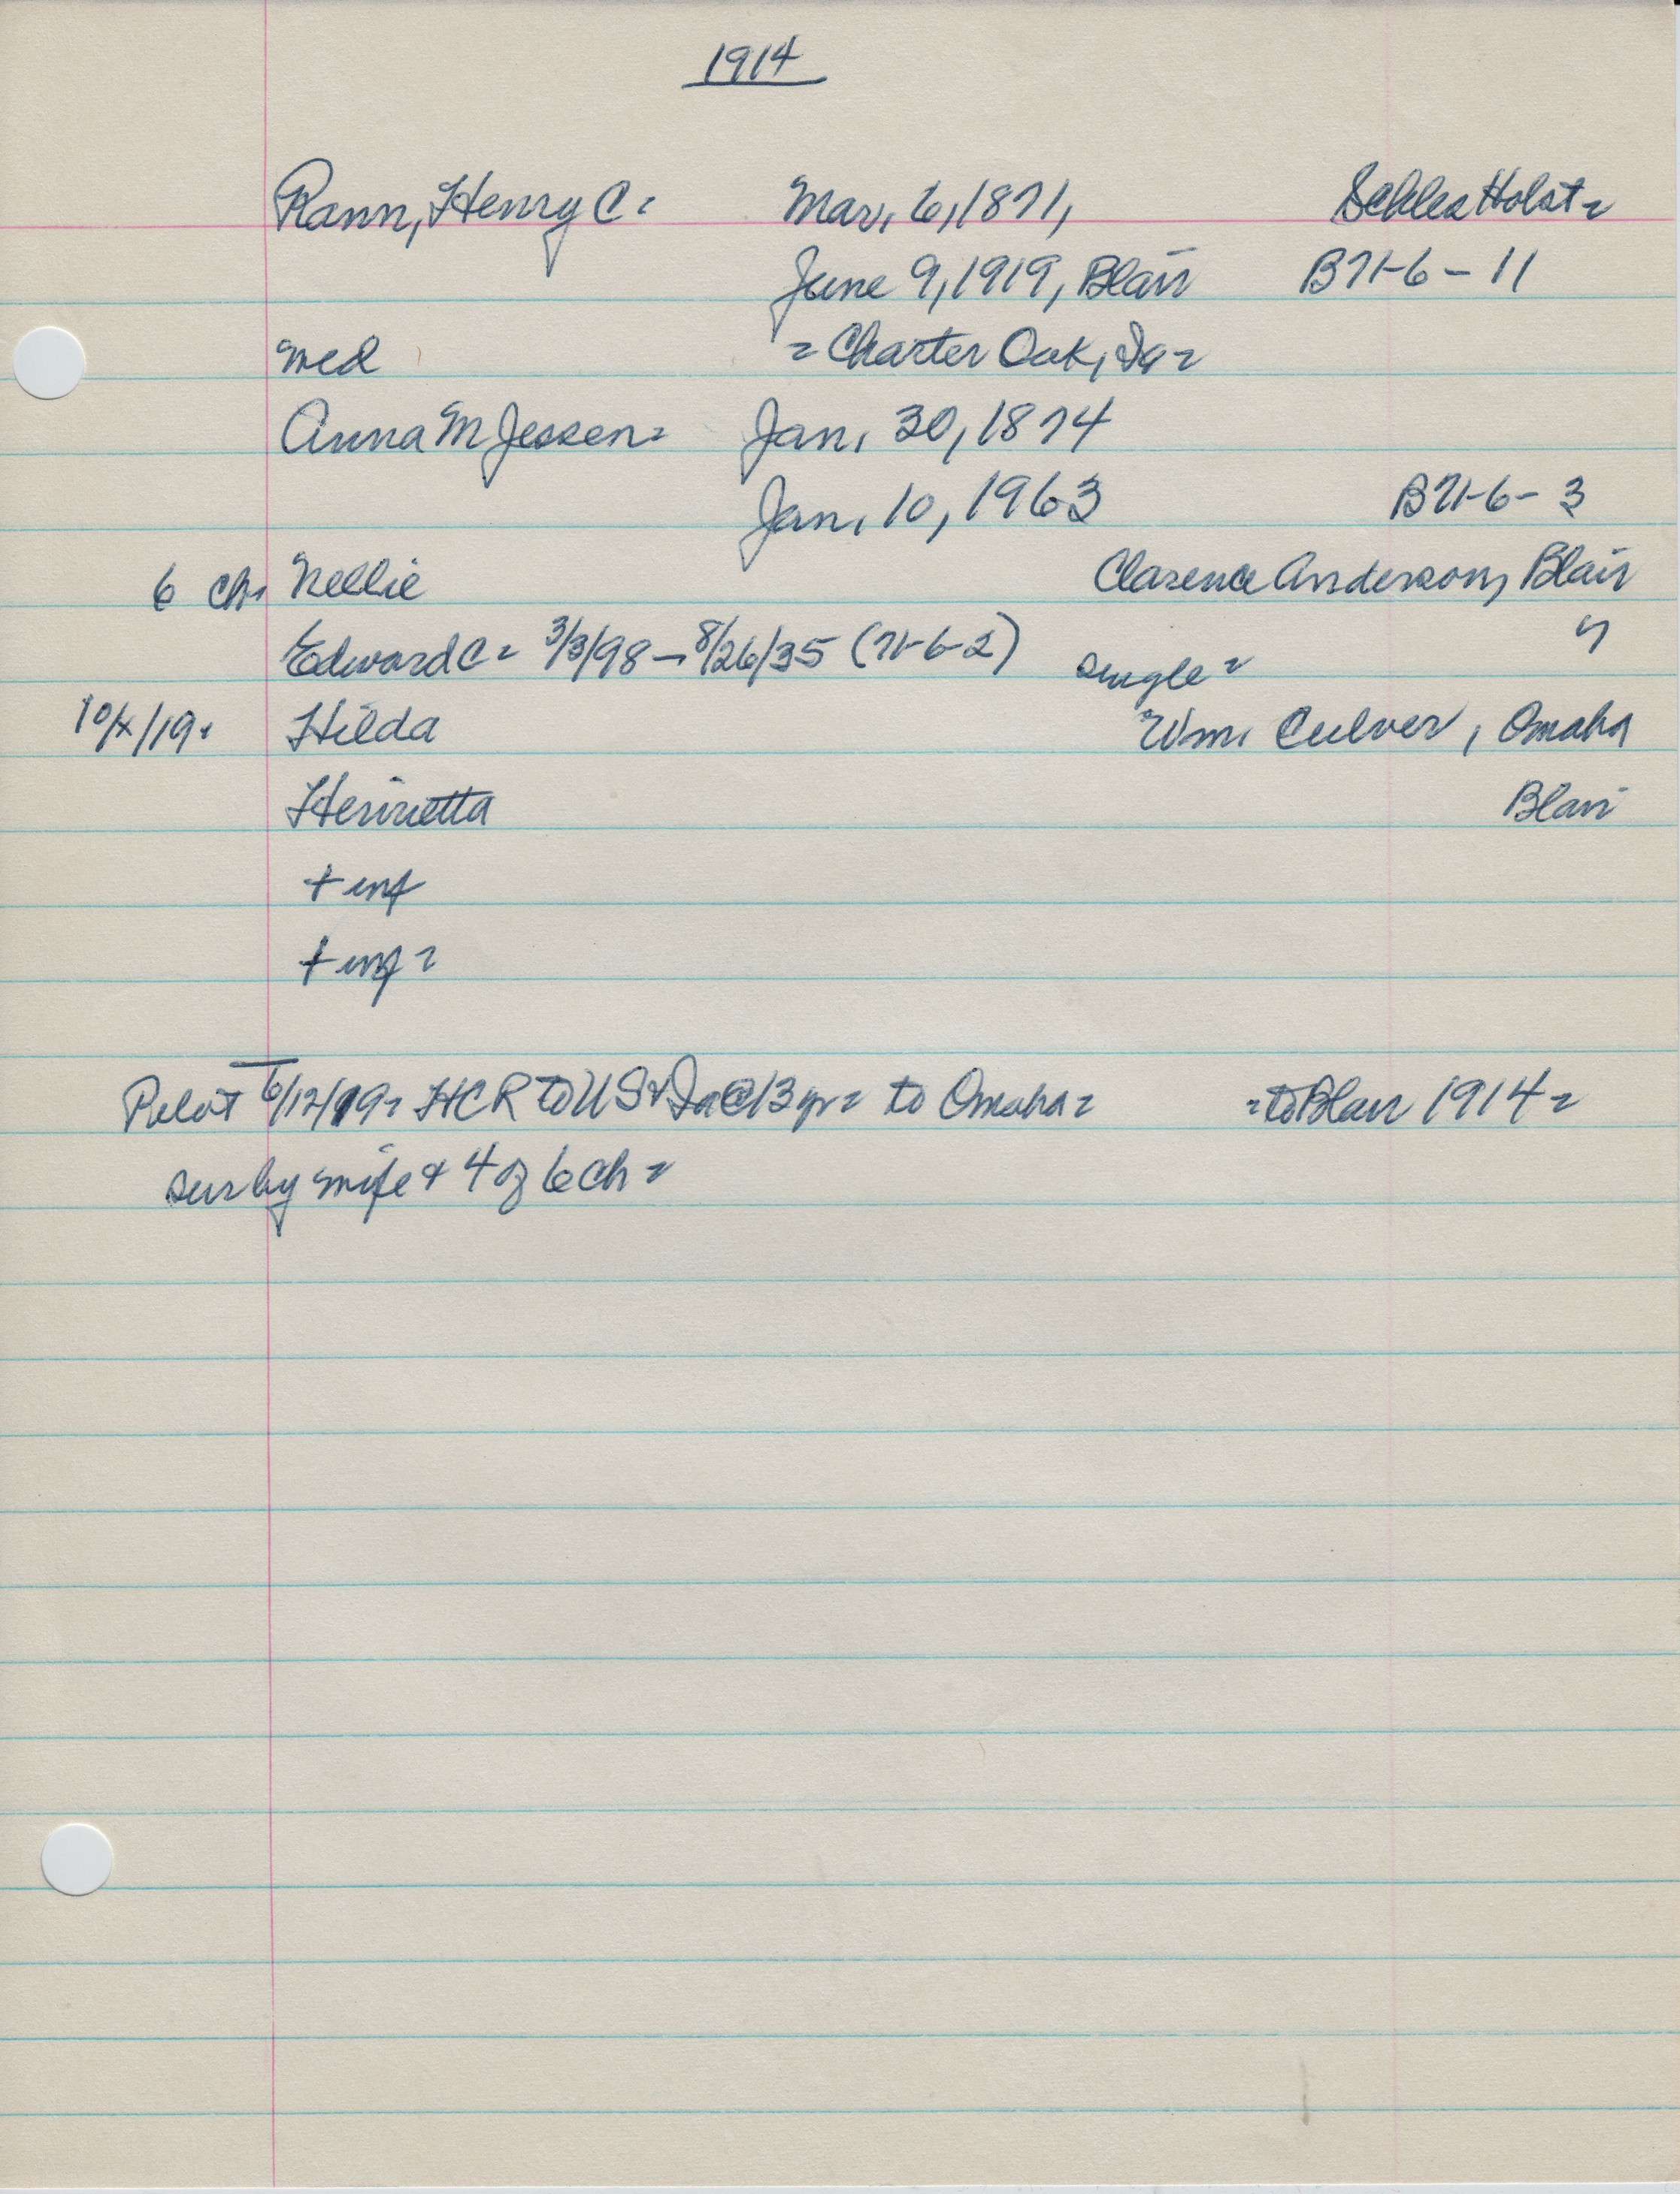 1914
Rann, Henry C. Mar. 6, 1871, Schles Holst =
June 9, 1919, Blair B71-6-11
med = Charter Oak, Ia =
Anna M Jessen = Jan. 30, 1874
Jan. 10, 1963 B71-6-3
6 ch. Nellie Clarence Anderson, Blair
Edward C = 3/3/98 - 8/26/35 (71-6-2) single = "
10/4/19. Hilda Wm. Culver, Omaha
Henrietta Blair
+ inf
+ inf =
Pilot 6/12/19 = HCR to US & Ia @ 13 yr = to Omaha = = to Blair 1914 =
sur by wife & 4 of 6 ch =